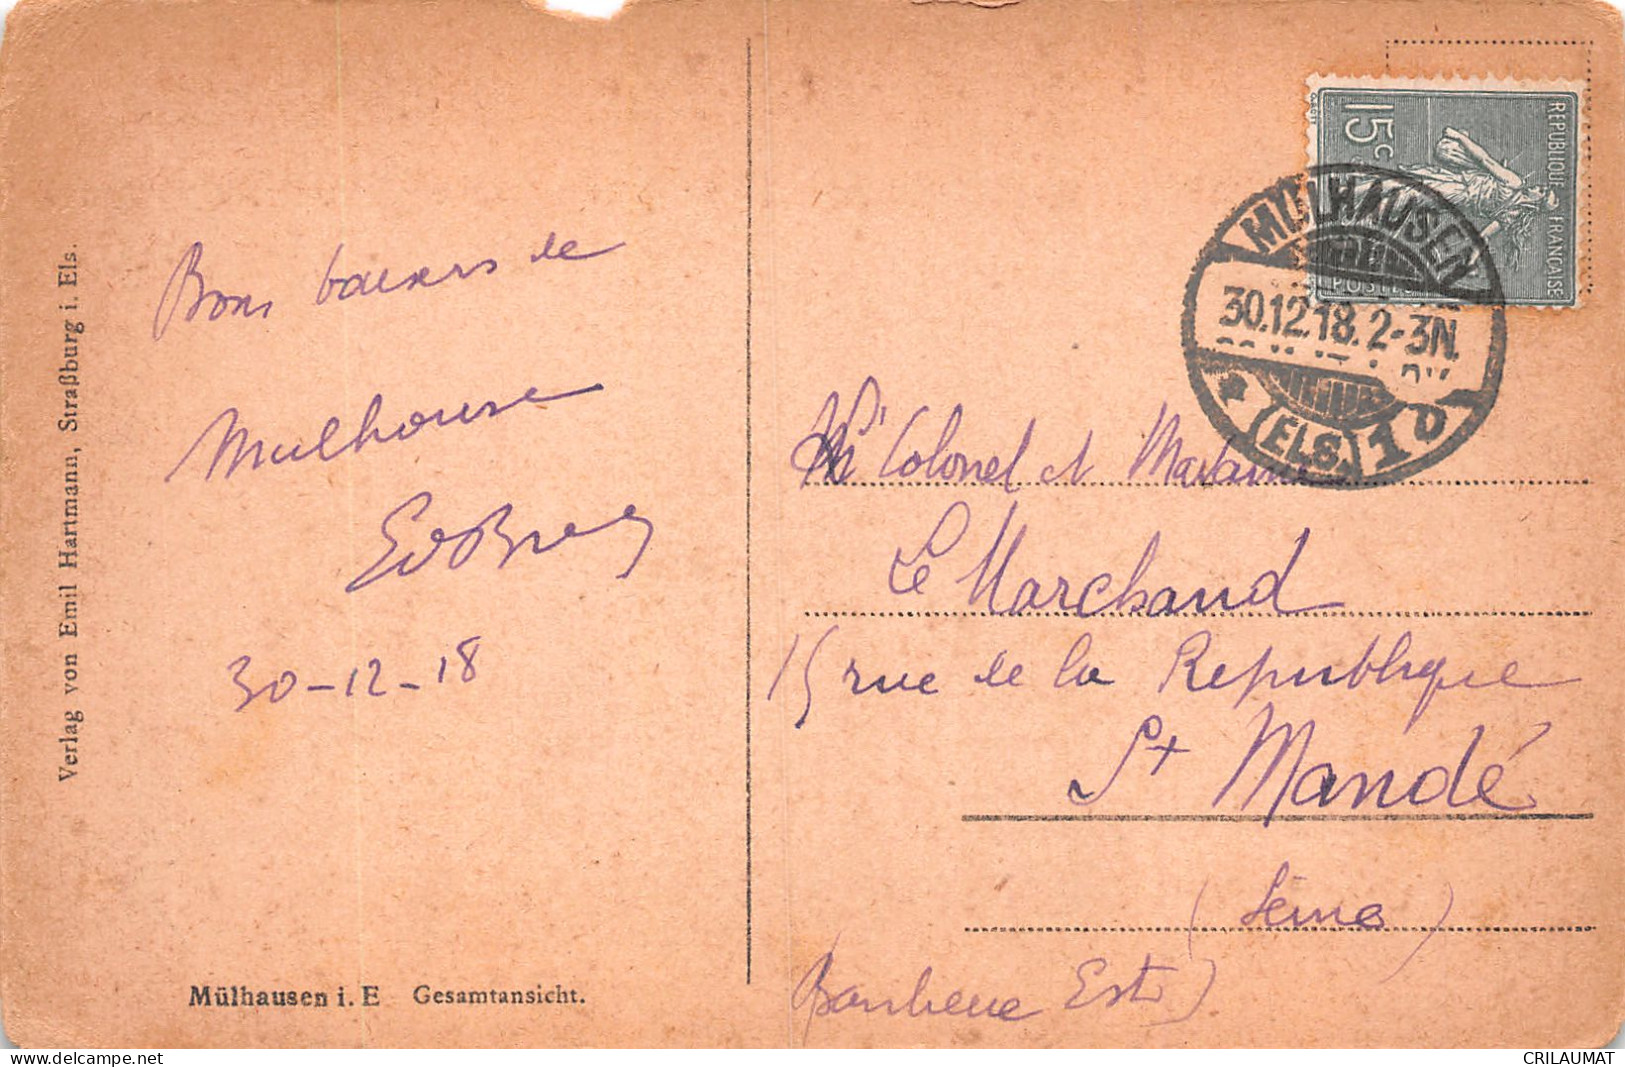 Verlag von Emil Hartmann, Straßburg i. Els.
Bons baisers de
Mulhouse
30-12-18
Mülhausen i. E Gesamtansicht.
REPUBLIQUE FRANÇAISE
15c
POSTES
MÜLHAUSEN
30.12.18. 2-3N.
(ELS.)
Colonel et Madame
Le Marchand
15 rue de la Republique
St Mandé
(Seine)
Banlieue Est)
CRILAUMAT